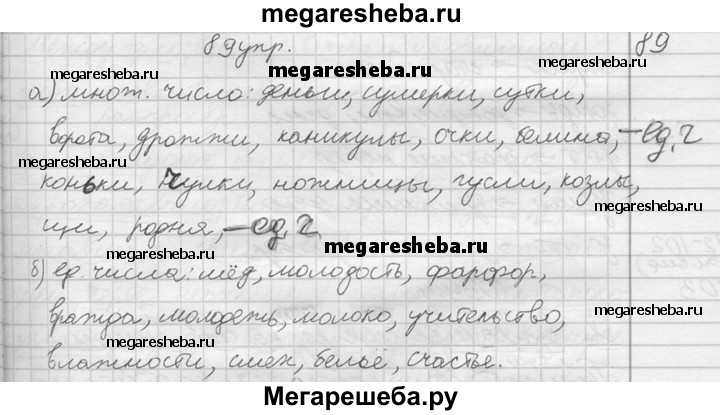 megaresheba.ru
89упр. 89
megaresheba.ru megaresheba.ru megaresheba.ru
а) множ. число: деньги, сумерки, сутки,
ворота, дрожжи, каникулы, очки, белила, – ед. ч
megaresheba.ru megaresheba.ru
коньки, чулки, ножницы, гусли, козлы,
щи, родня, – ед. ч
megaresheba.ru megaresheba.ru
б) ед. числа: мёд, молодость, фарфор,
megaresheba.ru
вражда, молодежь, молоко, учительство,
влажности, смех, бельё, счастье.
megaresheba.ru megaresheba.ru
Мегарешеба.ру